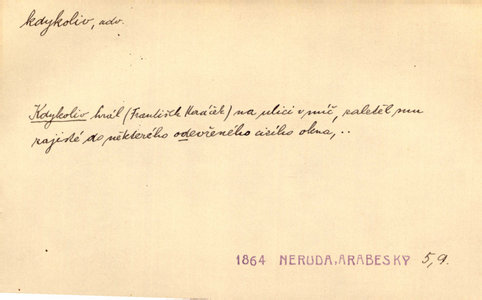 kdykoliv, adv.
Kdykoliv hrál (František Horáček) na ulici v míč, zaletěl mu
zajisté do některého odevřeného cizího okna, ..
1864 NERUDA, ARABESKY 5, 9.